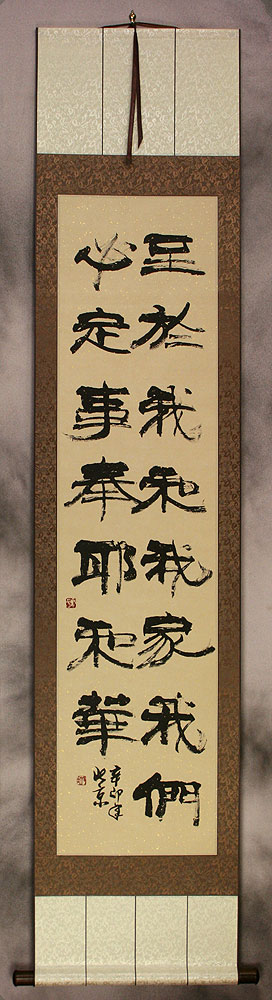 至於我和我家我們
必定事奉耶和華
辛卯年
於京